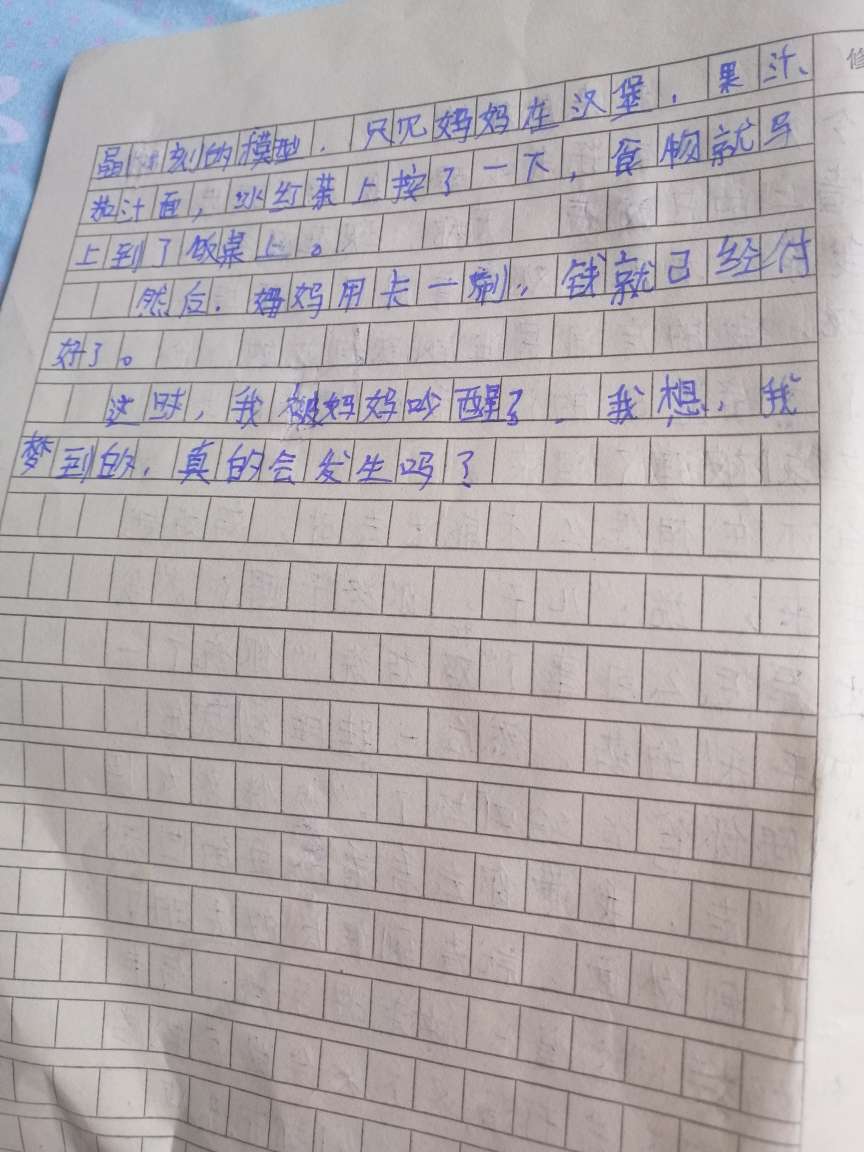 晶 刻的模型。只见妈妈在汉堡、果汁、
和汁面，冰红茶上按了一下，食物就马
上到了饭桌上。
然后，妈妈用卡一刷，钱就已经付
好了。
这时，我被妈妈吵醒了，我想，我
梦到的，真的会发生吗？
修